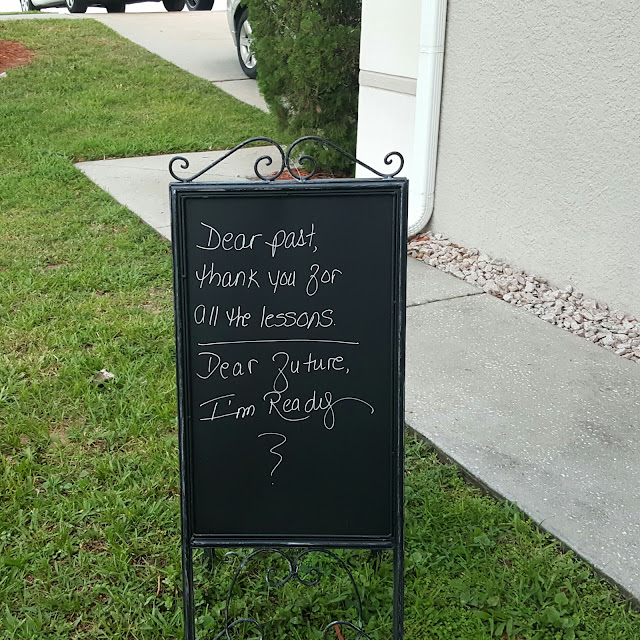 Dear past,
thank you for
all the lessons.
Dear Future,
I'm Ready